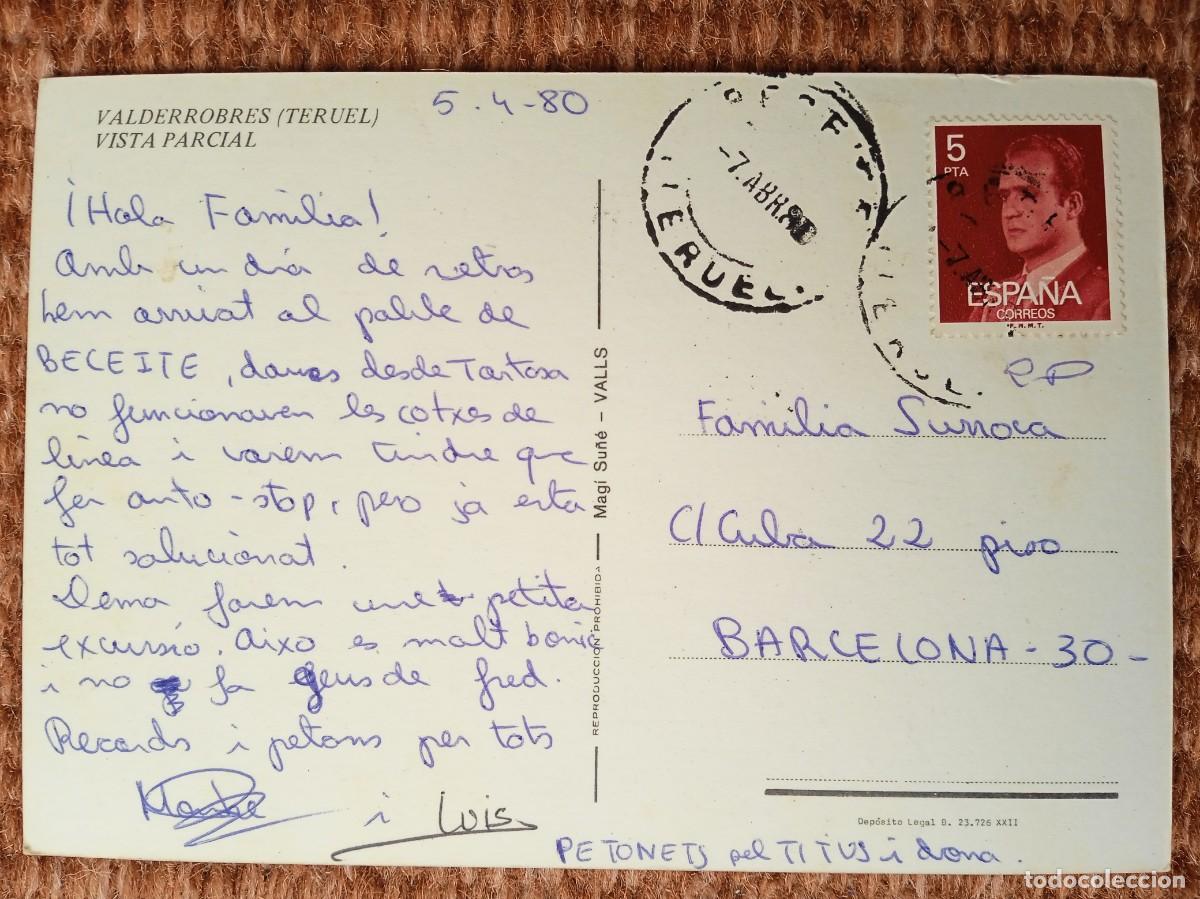 VALDERROBRES (TERUEL)
VISTA PARCIAL
5.4-80
¡Hola Familia!
Amb un dia de retras
hem arrivat al poble de
BECEITE, desde Tortosa
no funcionaven les cotxes de
linea i varem tindre que
fer auto-stop, pero ja esta
tot solucionat.
Dema farem une petita
excursió. Aixo es molt bonic
i no fa gens de fred.
Records i petons per tots
i Luis
PETONETS pel TITUS i dona.
REPRODUCCION PROHIBIDA — Magí Suñé – VALLS
-7.ABR.80
TERUEL.
5
PTA
ESPAÑA
CORREOS
F.N.M.T.
Familia Surroca
C/ Cuba 22 piso
BARCELONA-30-
Depósito Legal B. 23.726 XXII
todocoleccion